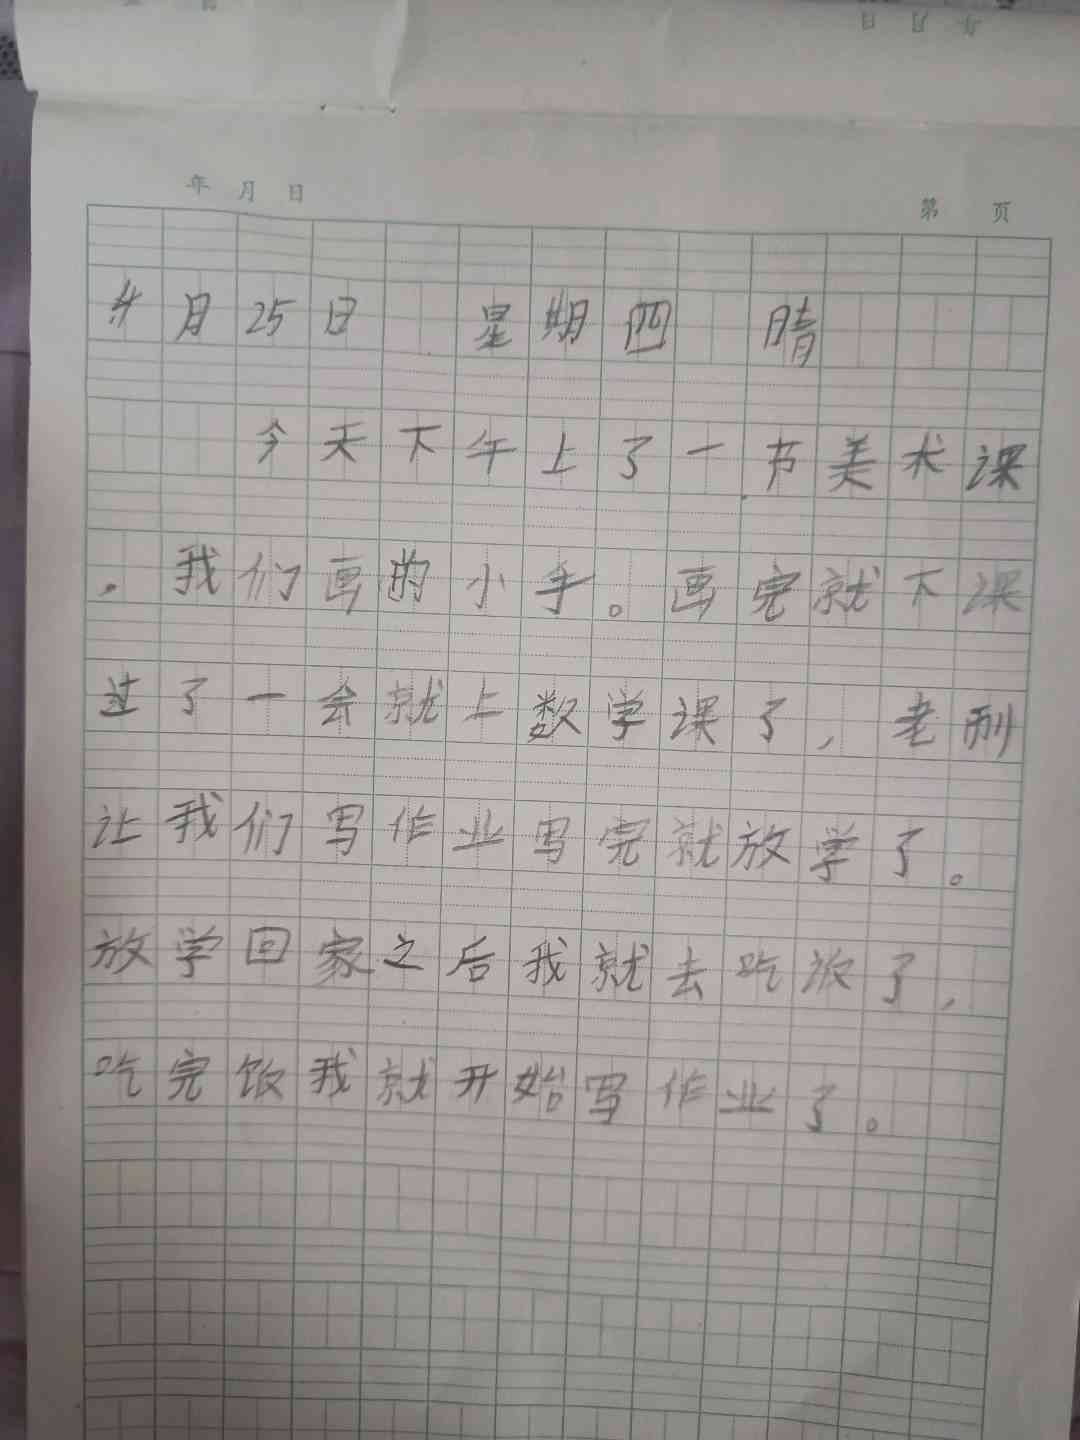 年 月 日
第 页
4月25日 星期四 晴
今天下午上了一节美术课
，我们画的小手。画完就下课
过了一会就上数学课了，老刑
让我们写作业写完就放学了。
放学回家之后我就去吃饭了，
吃完饭我就开始写作业了。